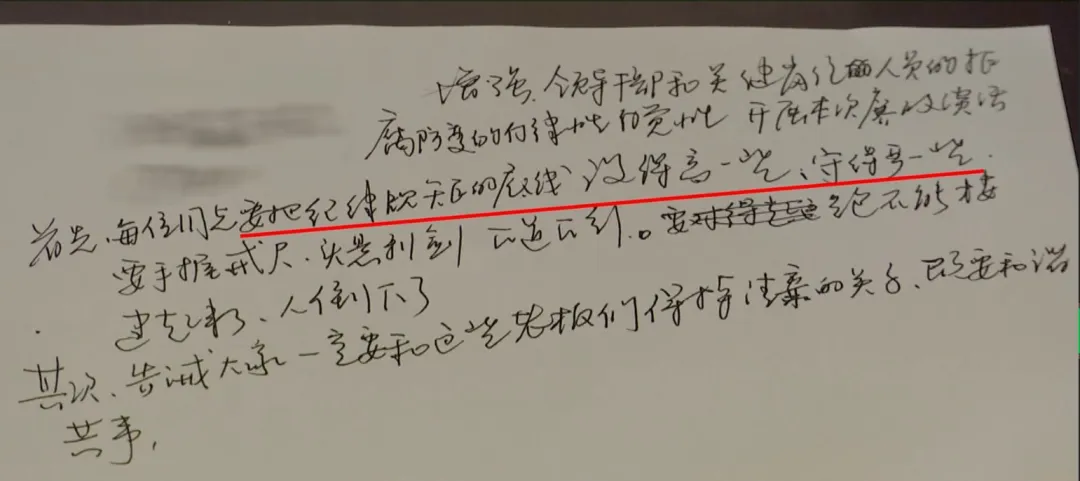 增强领导干部和关键岗位人员的拒
腐防变的纪律性和党性 开展本次廉政谈话
首先,每位同志要把纪律规矩的底线设得高一些、守得牢一些.
要手握戒尺.头悬利剑 绝不能楼
建起来了、人倒下了
其次、告诫大家一定要和这些老板们保持清廉的关系、既要和谐
共事,